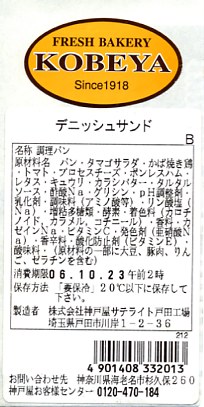 FRESH BAKERY
KOBEYA
Since1918
デニッシュサンド
B
名称 調理パン
原材料名 パン・タマゴサラダ・かば焼き鶏
・トマト・プロセスチーズ・ボンレスハム・
レタス・キュウリ・カラシバター・タルタル
ソース・酢酸Na・グリシン・pH調整剤・
乳化剤・調味料(アミノ酸等)・リン酸塩(
Na)・増粘多糖類・酵素・着色料(カロチ
ノイド、カラメル、コチニール)・香料・カ
ゼインNa・ビタミンC・発色剤(亜硝酸N
a)・香辛料・酸化防止剤(ビタミンE)・
酸味料・(原材料の一部に大豆、豚肉、りん
ご、ゼラチンを含む)
消費期限06.10.23午前2時
保存方法 「要保冷」20℃以下に保存して
下さい。
製造者 株式会社神戸屋サテライト戸田工場
埼玉県戸田市川岸1-2-36
212
4901408332013
お問い合わせ先 神奈川県海老名市杉久保260
神戸屋お客様センター 0120-470-184